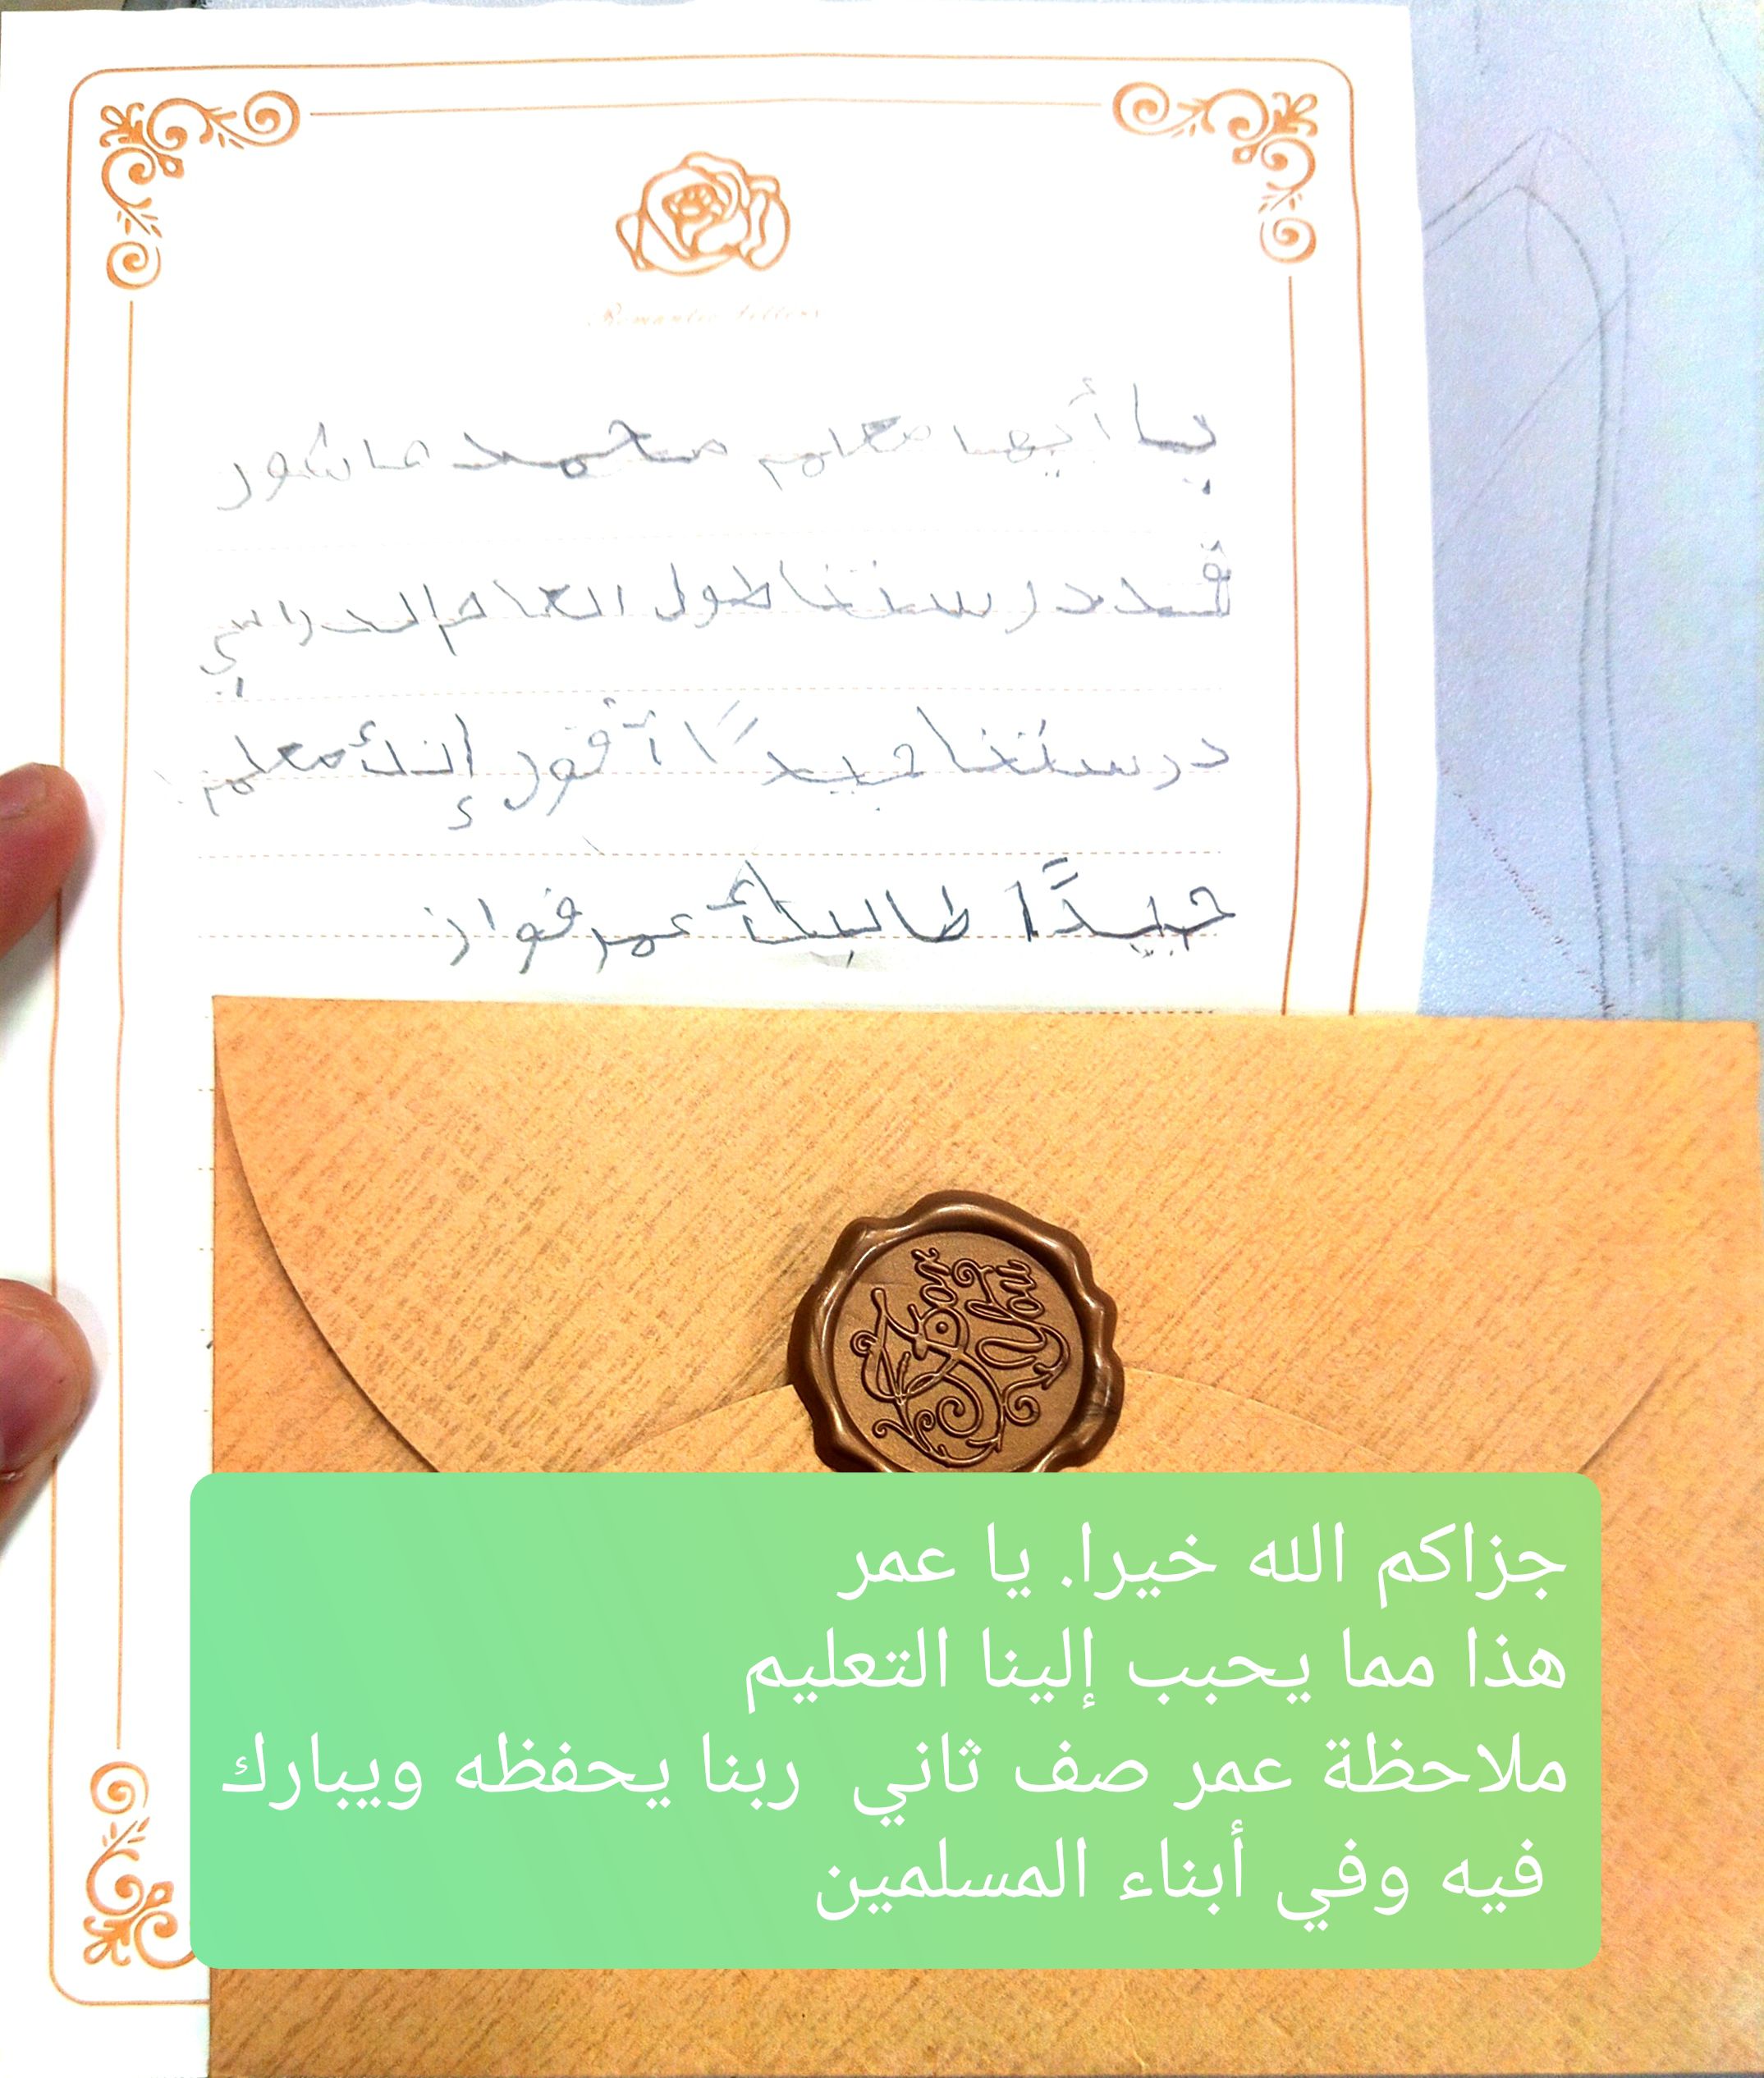 Romantic Letters
يا أيها معلم محمد عاشور
قد درستنا طول العام الدراسي
درستنا جيدًا أتقور إنك معلم
جيدًا طالبك عمر فواز
For You
جزاكم الله خيرا. يا عمر
هذا مما يحبب إلينا التعليم
ملاحظة عمر صف ثاني ربنا يحفظه ويبارك
فيه وفي أبناء المسلمين